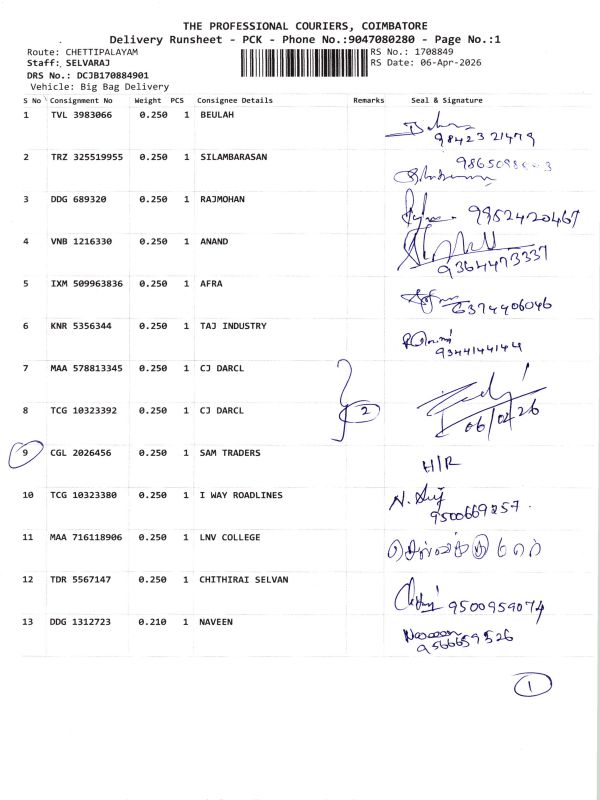 THE PROFESSIONAL COURIERS, COIMBATORE
Delivery Runsheet - PCK - Phone No.:9047080280 - Page No.:1
Route: CHETTIPALAYAM RS No.: 1708849
Staff: SELVARAJ RS Date: 06-Apr-2026
DRS No.: DCJB170884901
Vehicle: Big Bag Delivery
S No Consignment No Weight PCS Consignee Details Remarks Seal & Signature
1 TVL 3983066 0.250 1 BEULAH
9842321479
2 TRZ 325519955 0.250 1 SILAMBARASAN
3 DDG 689320 0.250 1 RAJMOHAN
4 VNB 1216330 0.250 1 ANAND
9364473337
5 IXM 509963836 0.250 1 AFRA
6374406046
6 KNR 5356344 0.250 1 TAJ INDUSTRY
9344144144
7 MAA 578813345 0.250 1 CJ DARCL
8 TCG 10323392 0.250 1 CJ DARCL 2
9 CGL 2026456 0.250 1 SAM TRADERS H/R
10 TCG 10323380 0.250 1 I WAY ROADLINES
9500669257
11 MAA 716118906 0.250 1 LNV COLLEGE
12 TDR 5567147 0.250 1 CHITHIRAI SELVAN
9500959074
13 DDG 1312723 0.210 1 NAVEEN Naveen
9566659526
1